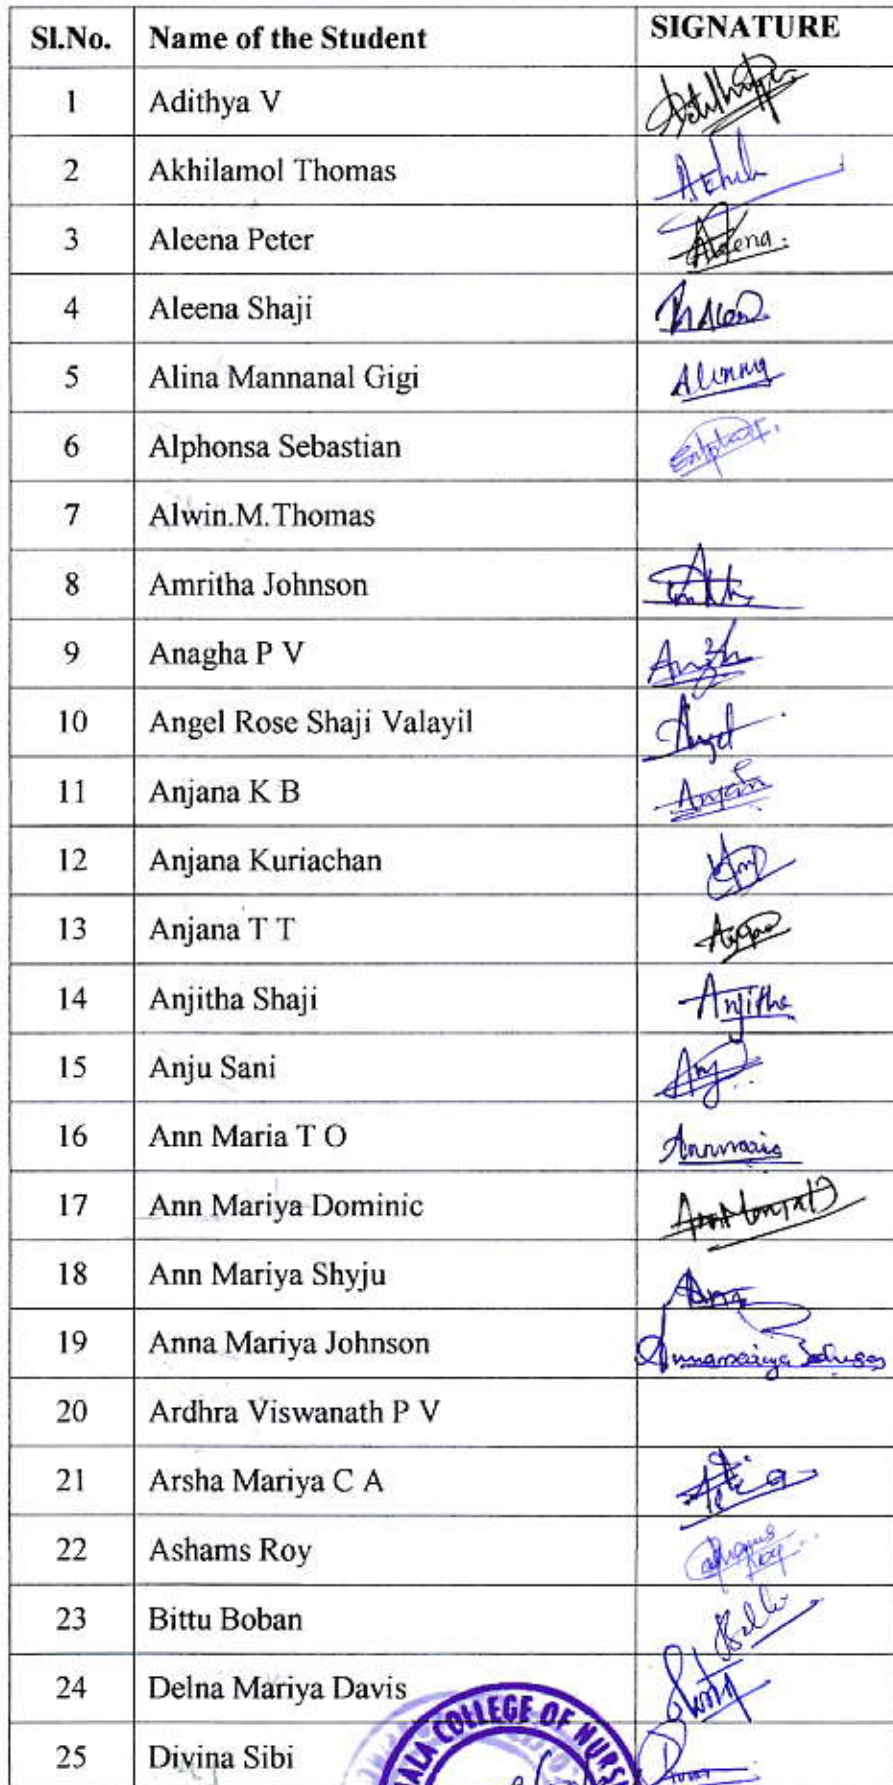 Sl.No. Name of the Student SIGNATURE
1 Adithya V
2 Akhilamol Thomas
3 Aleena Peter Aleena.
4 Aleena Shaji
5 Alina Mannanal Gigi
6 Alphonsa Sebastian
7 Alwin.M.Thomas
8 Amritha Johnson
9 Anagha P V
10 Angel Rose Shaji Valayil Angel
11 Anjana K B
12 Anjana Kuriachan
13 Anjana T T
14 Anjitha Shaji Anjitha
15 Anju Sani
16 Ann Maria T O Annmaria
17 Ann Mariya Dominic
18 Ann Mariya Shyju
19 Anna Mariya Johnson
20 Ardhra Viswanath P V
21 Arsha Mariya C A
22 Ashams Roy
23 Bittu Boban
24 Delna Mariya Davis
25 Divina Sibi
COLLEGE OF